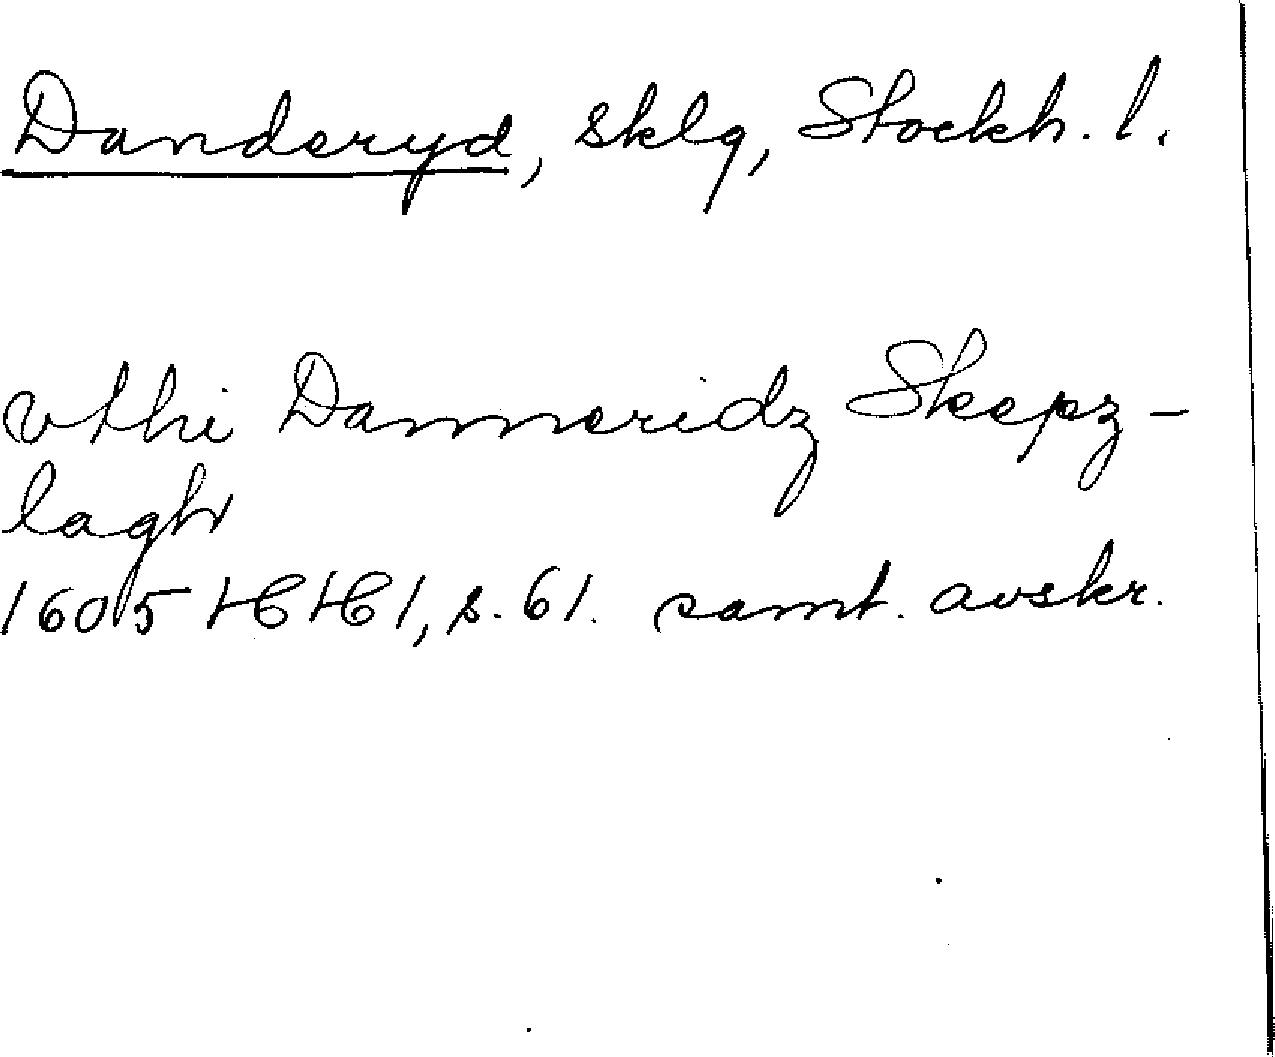 Danderyd, sklg, Stockh. l.
vthi Danneridz Skepz-
lagh
1605 HH 1, s. 61. samt. avskr.